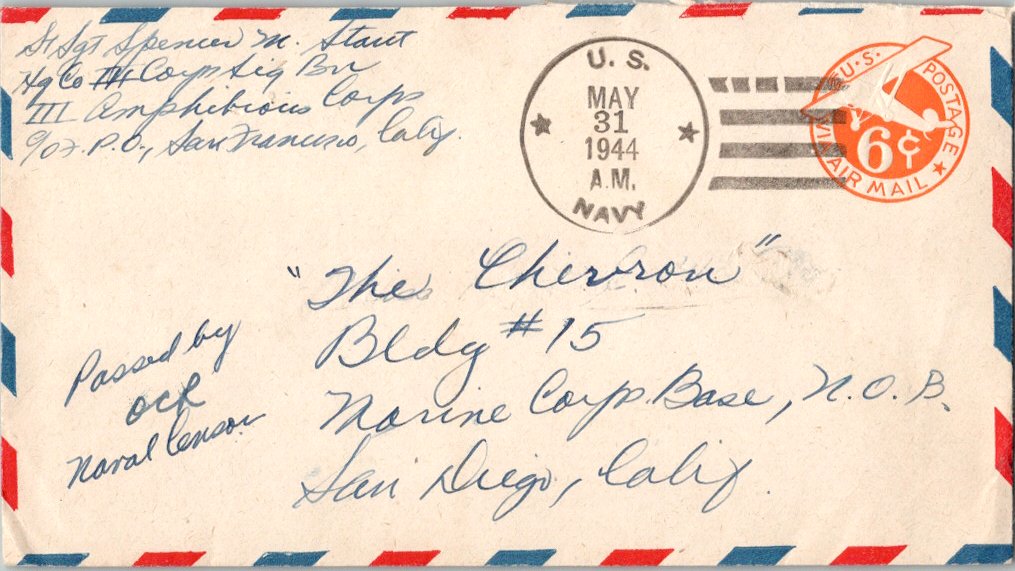 St Sgt Spencer M. Stant
Hq Co III Corps Sig Bn
III Amphibious Corps
c/o F.P.O., San Francisco, Calif.
U. S.
MAY
31
1944
A.M.
NAVY
U·S· POSTAGE
6¢
VIA AIR MAIL
"The Chevron"
Bldg #15
Marine Corps Base, N.O.B.
San Diego, Calif.
Passed by
OCR
Naval Censor